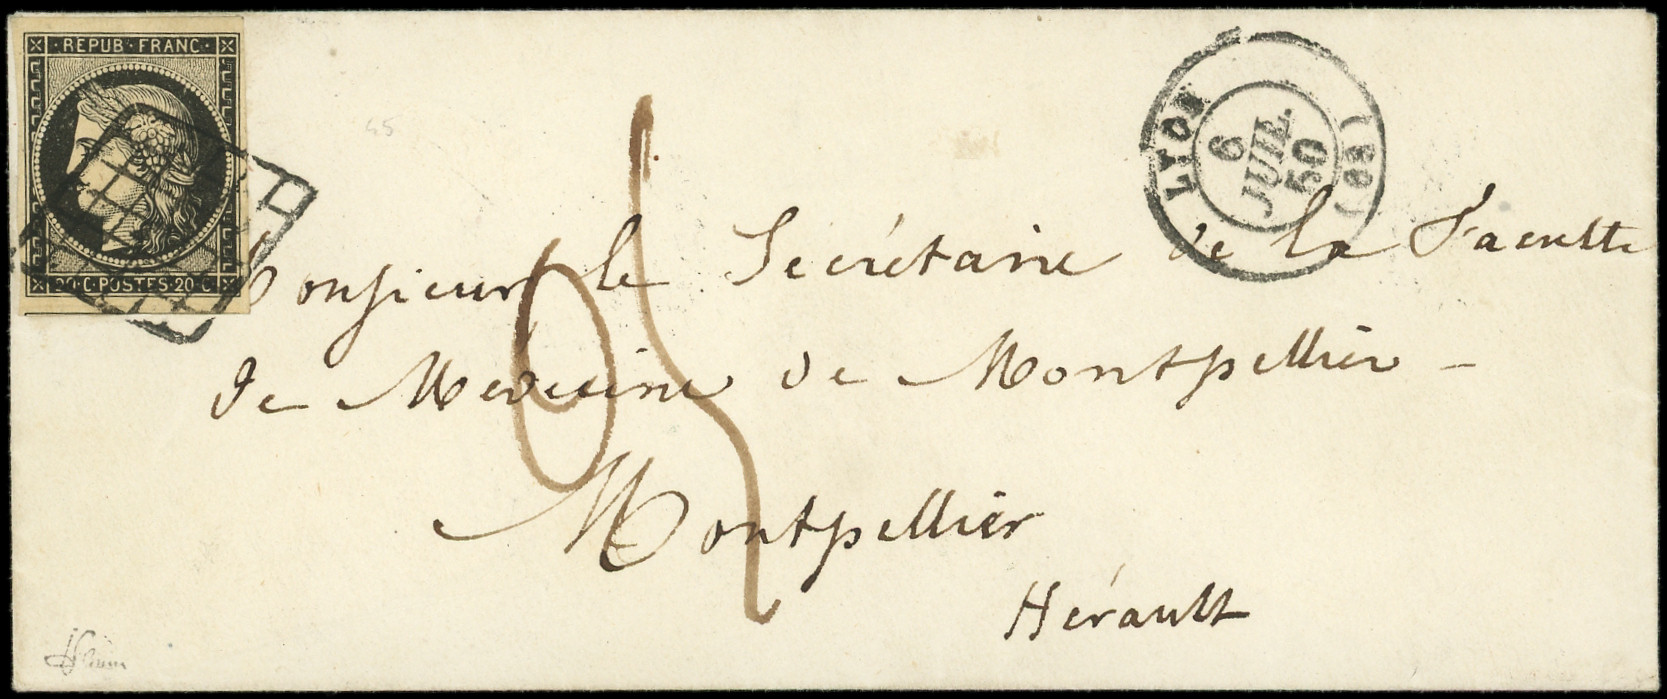 REPUB·FRANC·
20·C·POSTES·20·C
45
LYON
6
JUIL.
50
(68)
Monsieur le Secrétaire de la Faculté
De Medecine de Montpellier –
Montpellier
Hérault